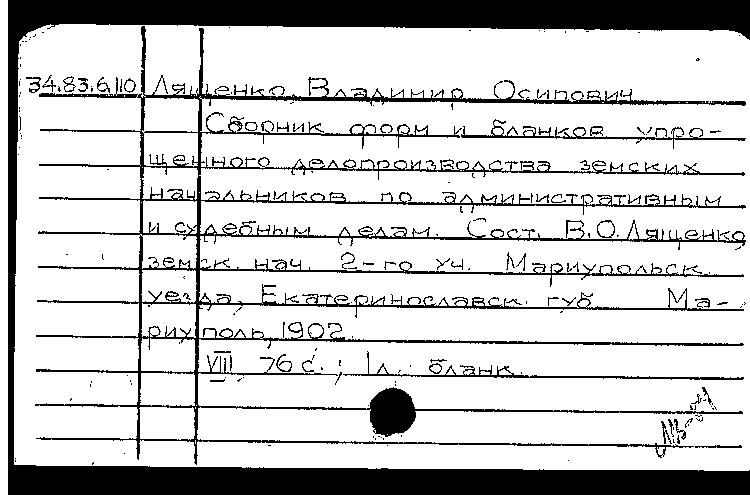 34.83.6.110 Лященко, Владимир Осипович
Сборник форм и бланков упро-
щенного делопроизводства земских
начальников по административным
и судебным делам. Сост. В.О. Лященко,
земск. нач. 2-го уч. Мариупольск.
уезда, Екатеринославск. губ. Ма-
риуполь, 1902.
VIII, 76 с.; 1 л. бланк.